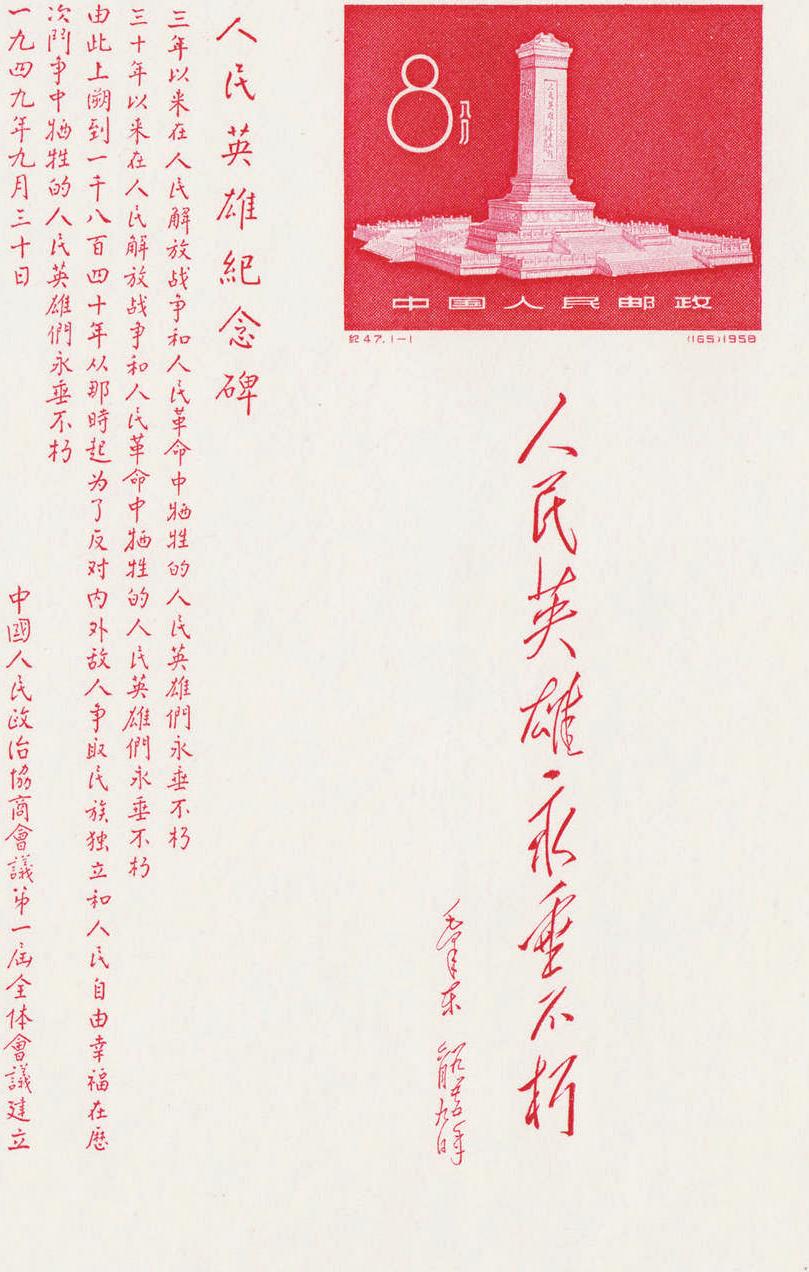 8分
中国人民邮政
紀47.1-1
(165)1958
人民英雄永垂不朽
毛澤东
人民英雄紀念碑
三年以来在人民解放战争和人民革命中牺牲的人民英雄們永垂不朽
三十年以来在人民解放战争和人民革命中牺牲的人民英雄們永垂不朽
由此上溯到一千八百四十年从那時起为了反对内外敌人争取民族独立和人民自由幸福在歷
次鬥争中牺牲的人民英雄們永垂不朽
一九四九年九月三十日
中國人民政治協商會議第一屆全体會議建立